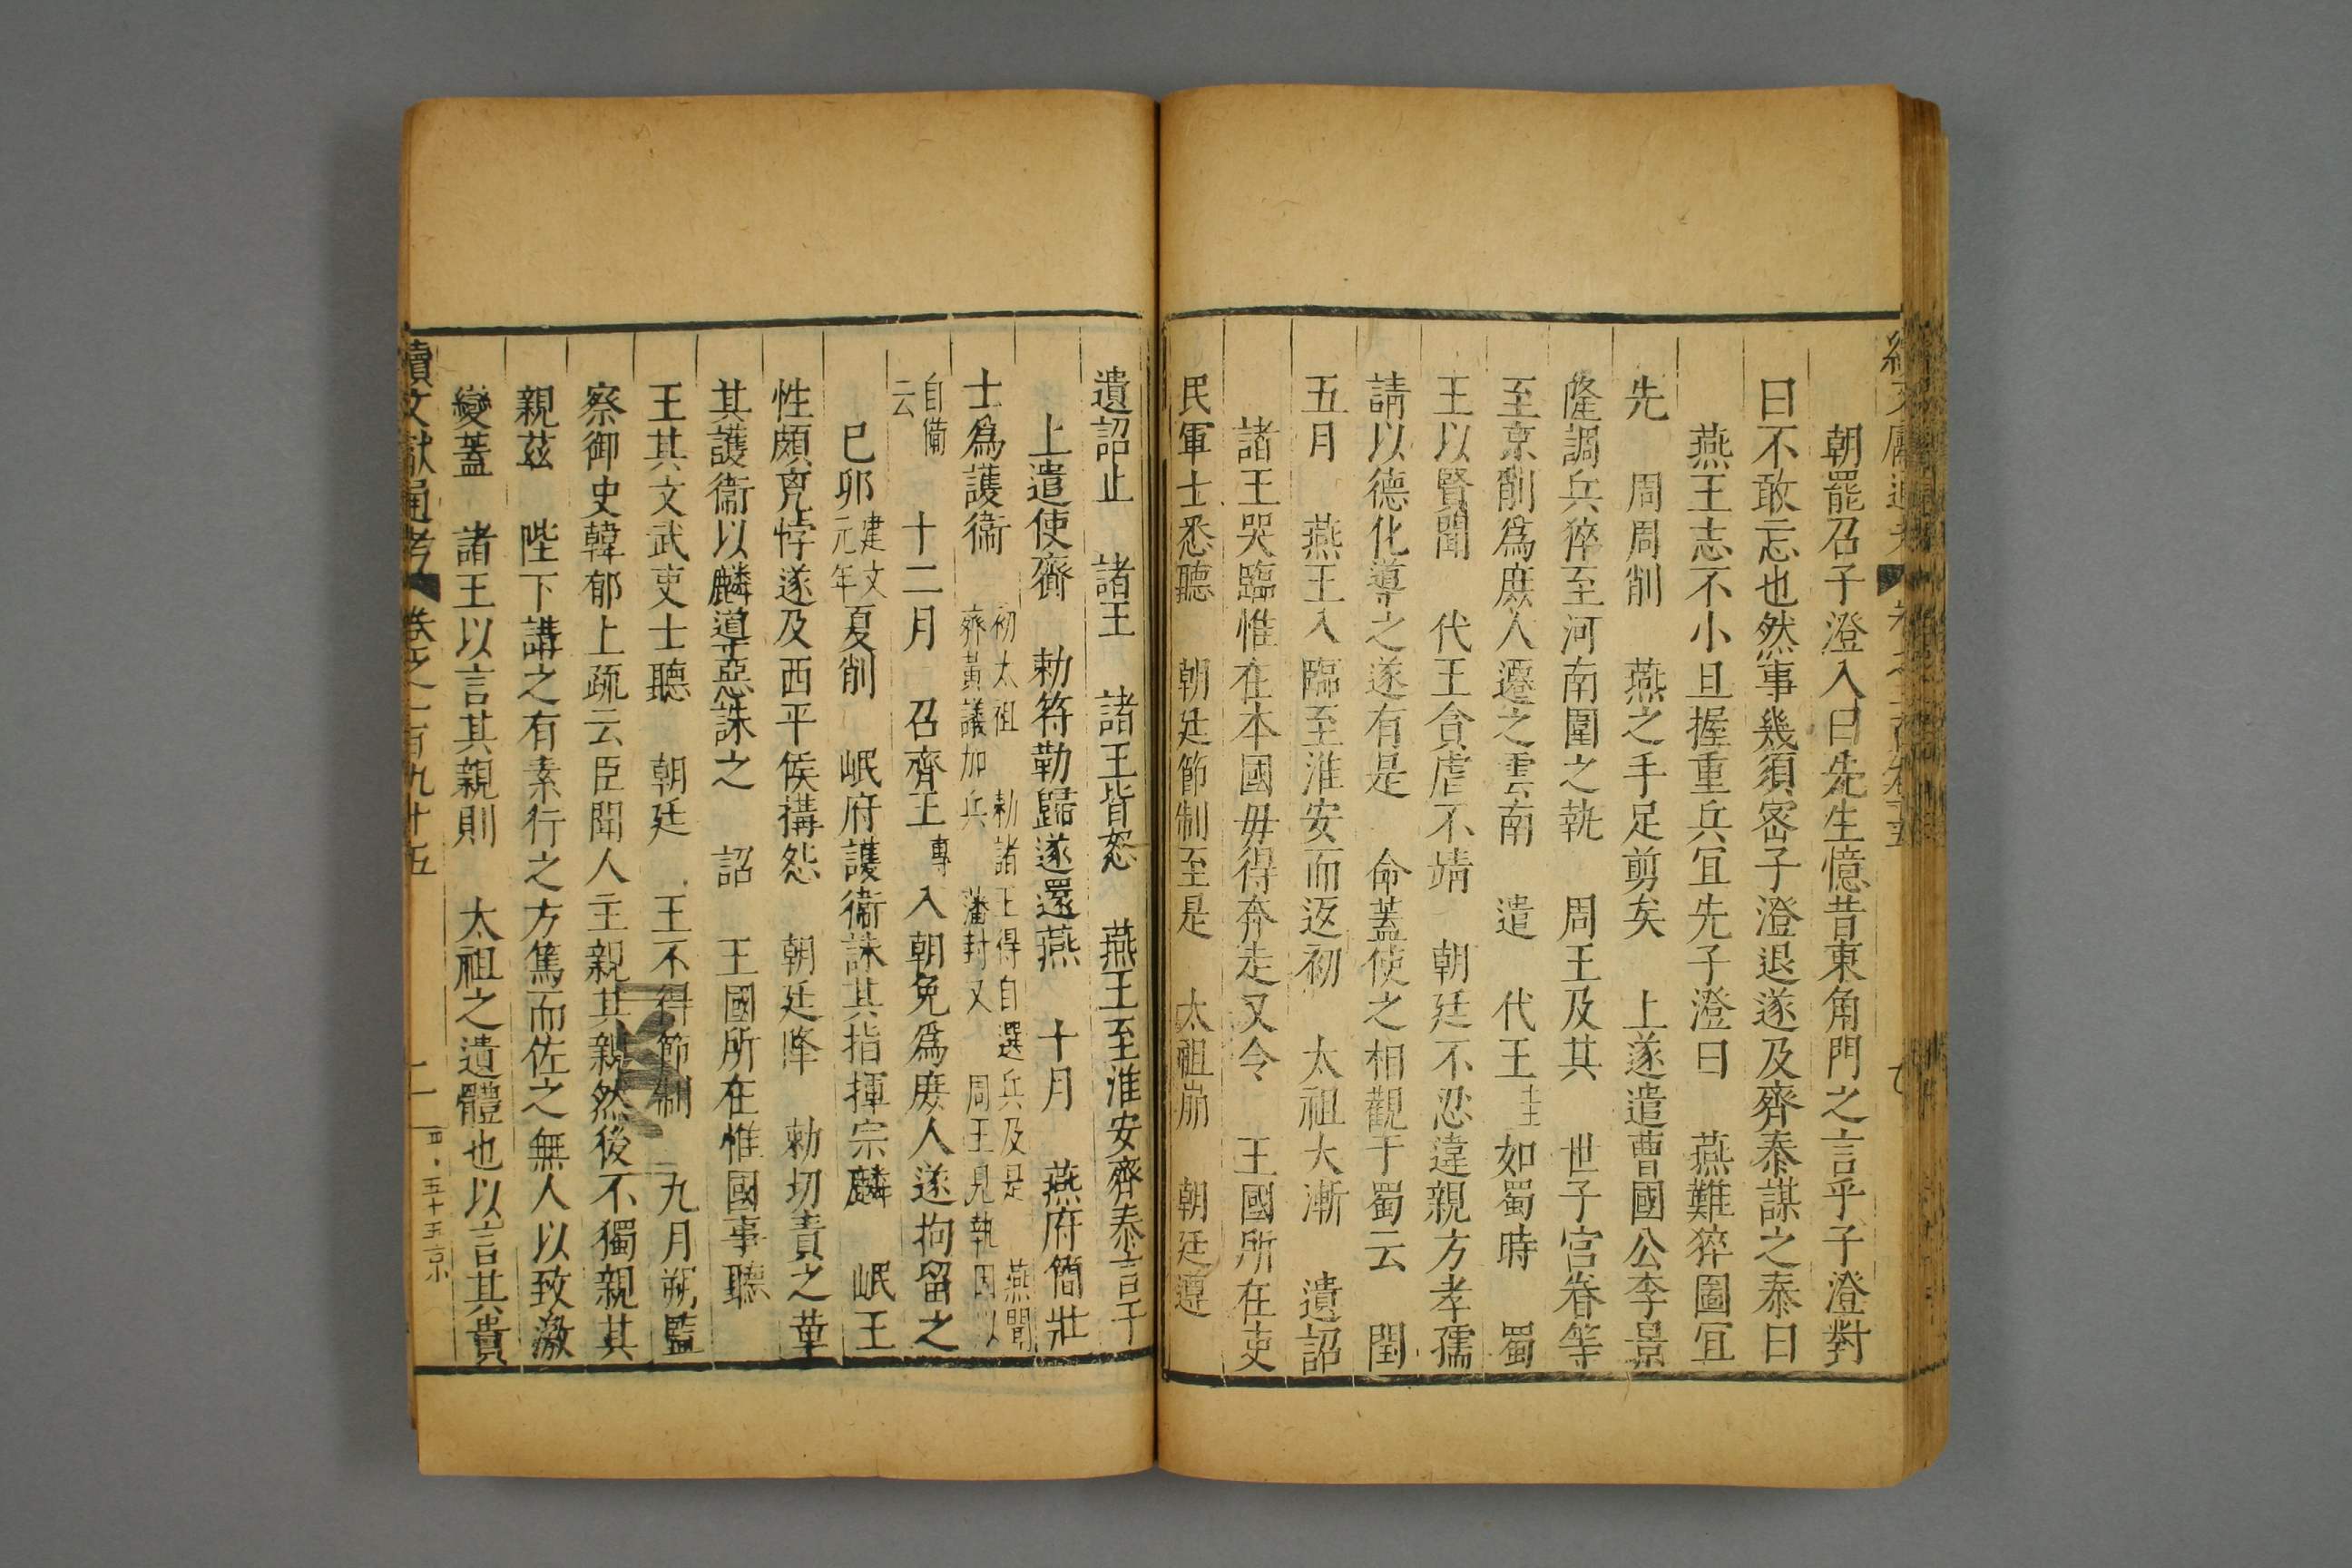 朝罷召子澄入曰先生憶昔東角門之言乎子澄對
曰不敢忘也然事幾須密子澄退遂及齊泰謀之泰曰
燕王志不小且握重兵宜先子澄曰 燕難猝圖宜
先 周周削 燕之手足剪矣 上遂遣曹國公李景
隆調兵猝至河南圍之執 周王及其 世子宮眷等
至京削為庶人遷之雲南 遣 代王 如蜀時 蜀
王以賢聞 代王貪虐不靖 朝廷不忍違親方孝孺
請以德化導之遂有是 命蓋使之相觀于蜀云 閏
五月 燕王入臨至淮安而返初 太祖大漸 遺詔
諸王哭臨惟在本國毋得奔走又令 王國所在吏
民軍士悉聽 朝廷節制至是 太祖崩 朝廷遵
遺詔止 諸王 諸王皆怒 燕王至淮安齊泰言于
上遣使齎 勅符勒歸遂還燕 十月 燕府簡壯
士為護衛 初太祖 勅諸王得自選兵及是 燕聞
齊黃議加兵 藩封又 周王見執因以
自備
云 十二月 召齊王 入朝免為庶人遂拘留之
己卯 建文
元年 夏削 岷府護衛誅其指揮宗麟 岷王
性頗兇悖遂及西平侯搆怨 朝廷降 勅切責之革
其護衛以麟導惡誅之 詔 王國所在惟國事聽
王其文武吏士聽 朝廷 王不得節制 九月朔監
察御史韓郁上疏云臣聞人主親其親然後不獨親其
親茲 陛下講之有素行之方篤而佐之無人以致激
變蓋 諸王以言其親則 太祖之遺體也以言其貴
續文獻通考 卷之一百九十五
五十五